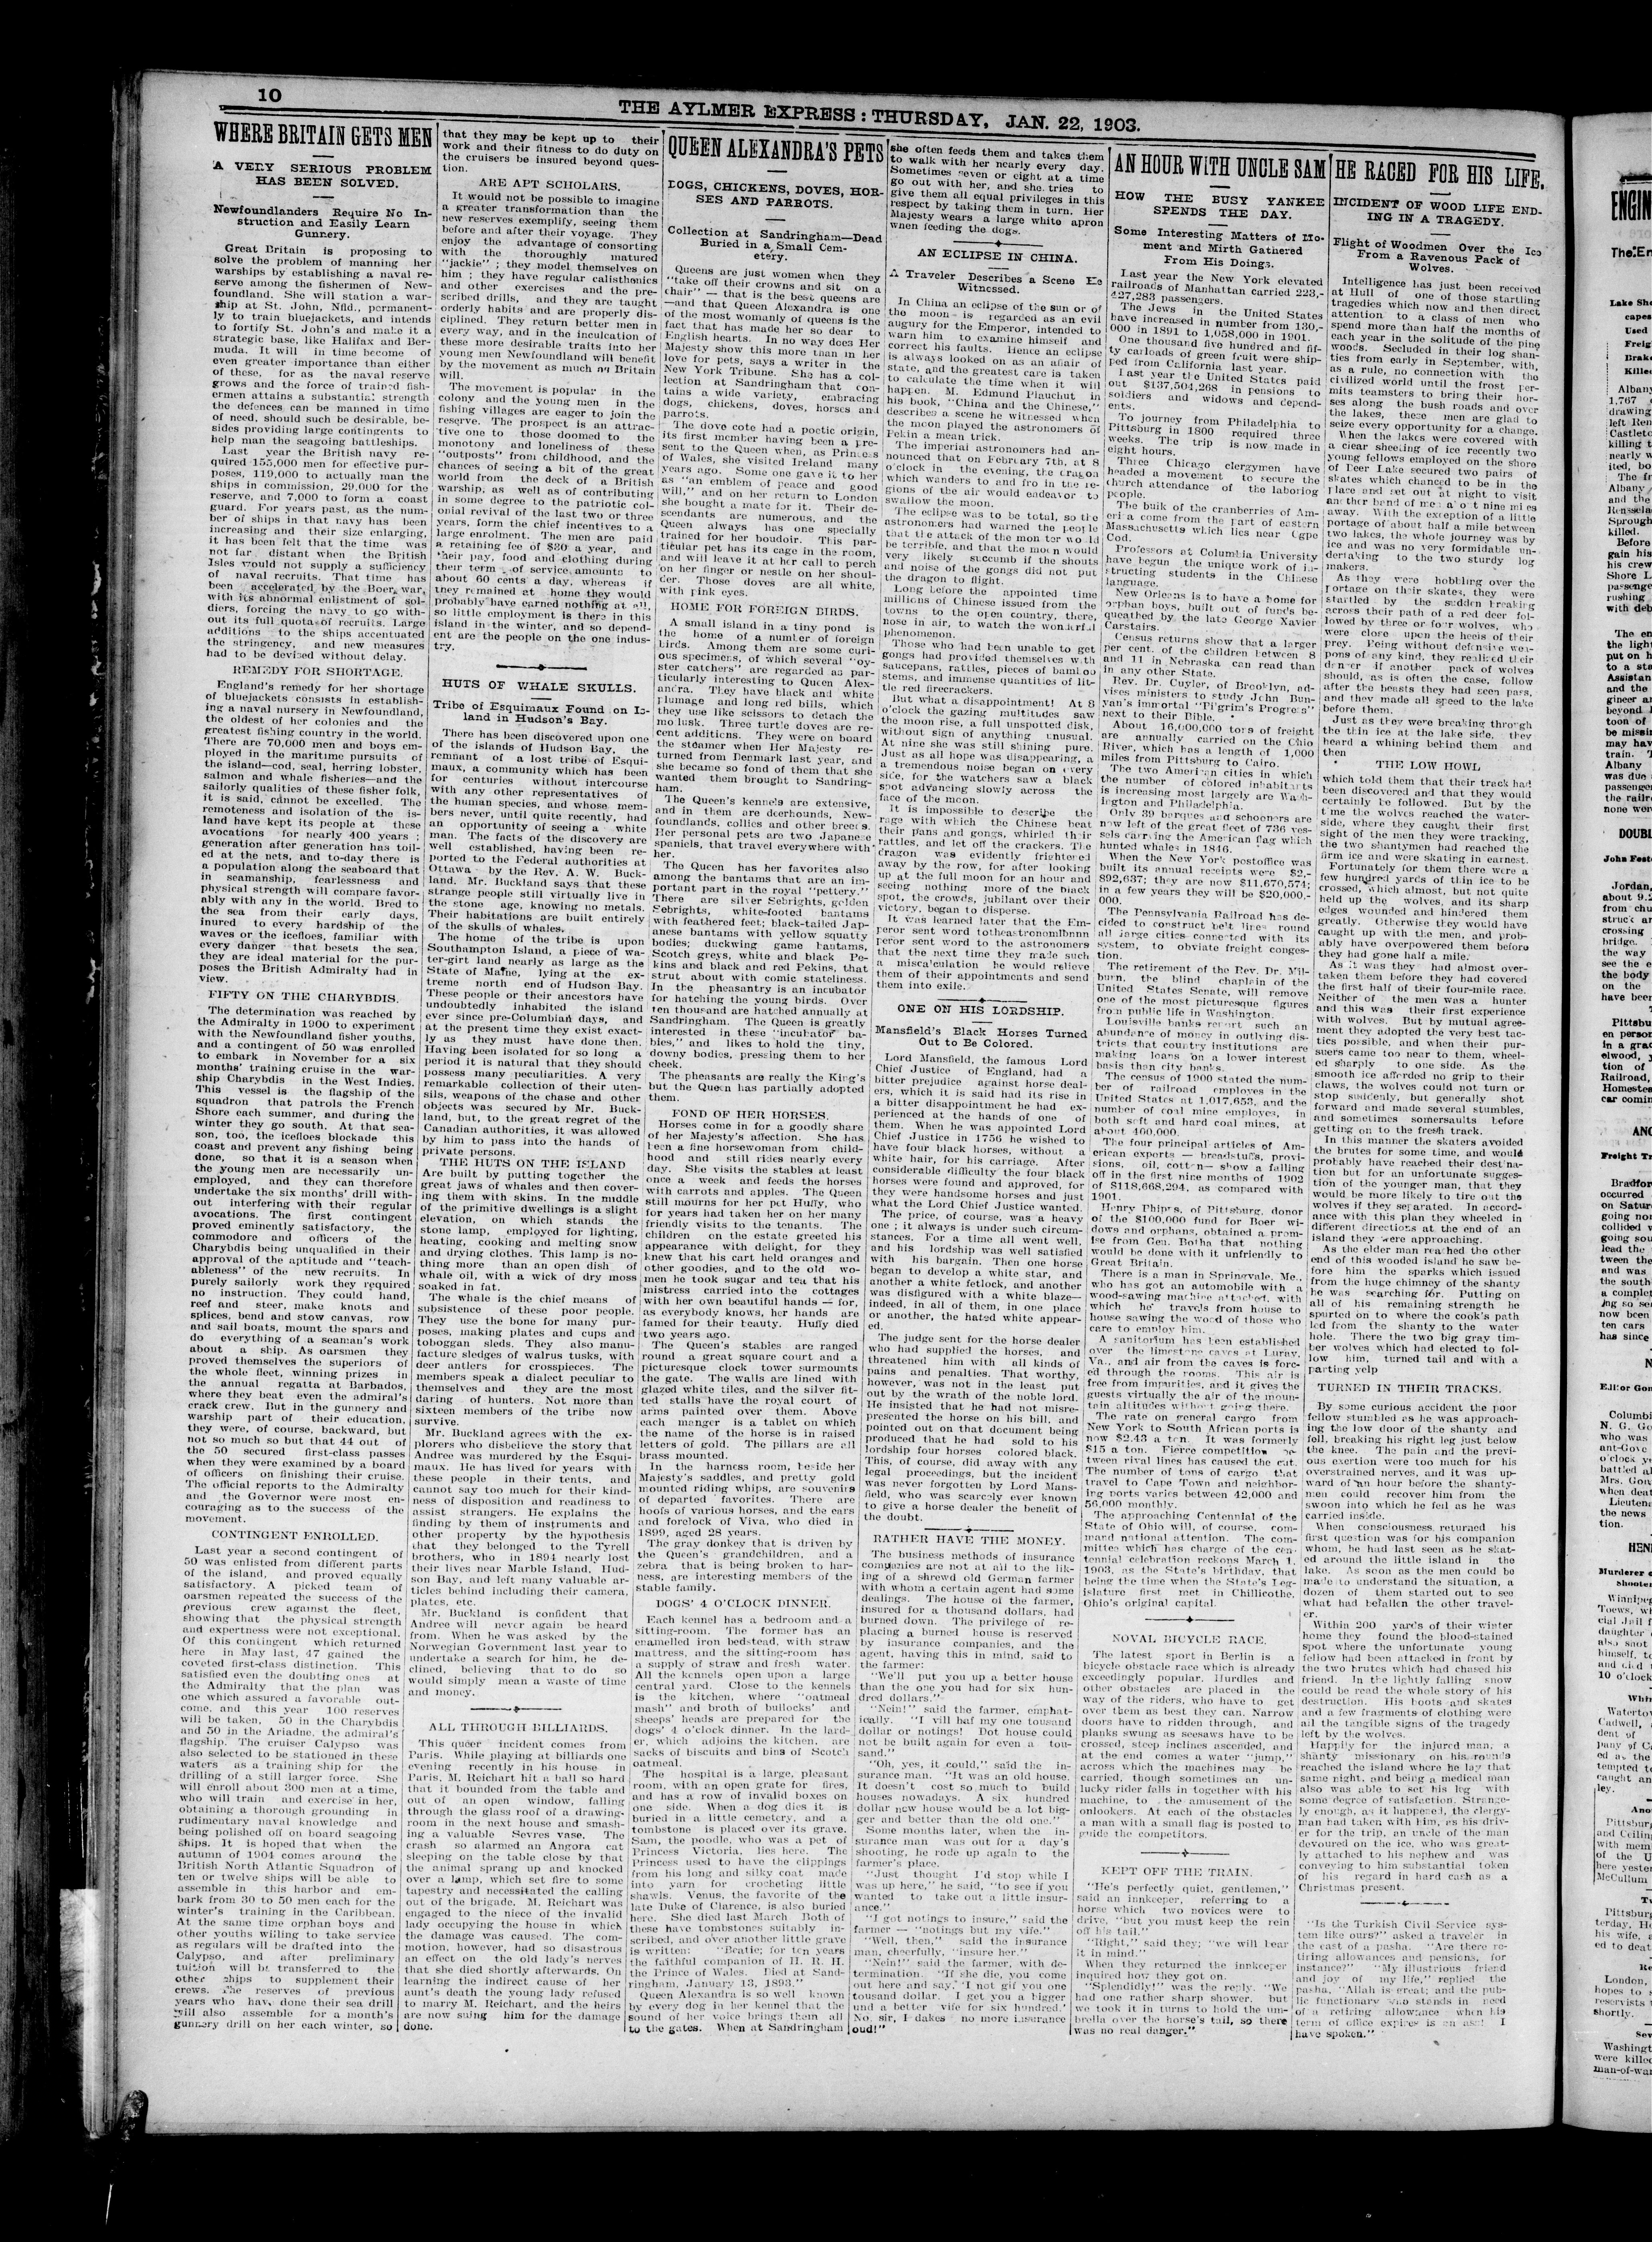 10
THE AYLMER EXPRESS: THURSDAY, JAN. 22, 1903.
WHERE BRITAIN GETS MEN
A VERY SERIOUS PROBLEM
HAS BEEN SOLVED.
Newfoundlanders Require No In-
struction and Easily Learn
Gunnery.
Great Britain is proposing to
solve the problem of manning her
warships by establishing a naval re-
serve among the fishermen of New-
foundland. She will station a war-
ship at St. John, Nfld., permanent-
ly to train bluejackets, and intends
to fortify St. John's and make it a
strategic base, like Halifax and Ber-
muda. It will in time become of
even greater importance than either
of these, for as the naval reserve
grows and the force of trained fish-
ermen attains a substantial strength
the defences can be manned in time
of need, should such be desirable, be-
sides providing large contingents to
help man the seagoing battleships.
Last year the British navy re-
quired 155,000 men for effective pur-
poses, 119,000 to actually man the
ships in commission, 29,000 for the
reserve, and 7,000 to form a coast
guard. For years past, as the num-
ber of ships in that navy has been
increasing and their size enlarging,
it has been felt that the time was
not far distant when the British
Isles would not supply a sufficiency
of naval recruits. That time has
been accelerated by the Boer war,
with its abnormal enlistment of sol-
diers, forcing the navy to go with-
out its full quota of recruits. Large
additions to the ships accentuated
the stringency, and new measures
had to be devised without delay.
REMEDY FOR SHORTAGE.
England's remedy for her shortage
of bluejackets consists in establish-
ing a naval nursery in Newfoundland,
the oldest of her colonies and the
greatest fishing country in the world.
There are 70,000 men and boys em-
ployed in the maritime pursuits of
the island—cod, seal, herring lobster,
salmon and whale fisheries—and the
sailorly qualities of these fisher folk,
it is said, cannot be excelled. The
remoteness and isolation of the is-
land have kept its people at these
avocations for nearly 400 years;
generation after generation has toil-
ed at the nets, and to-day there is
a population along the seaboard that
in seamanship, fearlessness and
physical strength will compare favor-
ably with any in the world. Bred to
the sea from their early days,
inured to every hardship of the
waves or the icefloes, familiar with
every danger that besets the sea,
they are ideal material for the pur-
poses the British Admiralty had in
view.
FIFTY ON THE CHARYBDIS.
The determination was reached by
the Admiralty in 1900 to experiment
with the Newfoundland fisher youths,
and a contingent of 50 was enrolled
to embark in November for a six
months' training cruise in the war-
ship Charybdis in the West Indies.
This vessel is the flagship of the
squadron that patrols the French
Shore each summer, and during the
winter they go south. At that sea-
son, too, the icefloes blockade this
coast and prevent any fishing being
done, so that it is a season when
the young men are necessarily un-
employed, and they can therefore
undertake the six months' drill with-
out interfering with their regular
avocations. The first contingent
proved eminently satisfactory, the
commodore and officers of the
Charybdis being unqualified in their
approval of the aptitude and "teach-
ableness" of the new recruits. In
purely sailorly work they required
no instruction. They could hand,
reef and steer, make knots and
splices, bend and stow canvas, row
and sail boats, mount the spars and
do everything of a seaman's work
about a ship. As oarsmen they
proved themselves the superiors of
the whole fleet, winning prizes in
the annual regatta at Barbados,
where they beat even the admiral's
crack crew. But in the gunnery and
warship part of their education,
they were, of course, backward, but
not so much so but that 44 out of
the 50 secured first-class passes
when they were examined by a board
of officers on finishing their cruise.
The official reports to the Admiralty
and the Governor were most en-
couraging as to the success of the
movement.
CONTINGENT ENROLLED.
Last year a second contingent of
50 was enlisted from different parts
of the island, and proved equally
satisfactory. A picked team of
oarsmen repeated the success of the
previous crew against the fleet,
showing that the physical strength
and expertness were not exceptional.
Of this contingent which returned
here in May last, 47 gained the
coveted first-class distinction. This
satisfied even the doubting ones at
the Admiralty that the plan was
one which assured a favorable out-
come, and this year 100 reserves
will be taken, 50 in the Charybdis
and 50 in the Ariadne, the admiral's
flagship. The cruiser Calypso was
also selected to be stationed in these
waters as a training ship for the
drilling of a still larger force. She
will enroll about 300 men at a time,
who will train and exercise in her,
obtaining a thorough grounding in
rudimentary naval knowledge and
being polished off on board seagoing
ships. It is hoped that when the
autumn of 1904 comes around the
British North Atlantic Squadron of
ten or twelve ships will be able to
assemble in this harbor and em-
bark from 30 to 50 men each for the
winter's training in the Caribbean.
At the same time orphan boys and
other youths willing to take service
as regulars will be drafted into the
Calypso, and after preliminary
tuition will be transferred to the
other ships to supplement their
crews. The reserves of previous
years who have done their sea drill
will also assemble for a month's
gunnery drill on her each winter, so
that they may be kept up to their
work and their fitness to do duty on
the cruisers be insured beyond ques-
tion.
ARE APT SCHOLARS.
It would not be possible to imagine
a greater transformation than the
new reserves exemplify, seeing them
before and after their voyage. They
enjoy the advantage of consorting
with the thoroughly matured
"jackie"; they model themselves on
him; they have regular calisthenics
and other exercises and the pre-
scribed drills, and they are taught
orderly habits and are properly dis-
ciplined. They return better men in
every way, and in the inculcation of
these more desirable traits into her
young men Newfoundland will benefit
by the movement as much as Britain
will.
The movement is popular in the
colony and the young men in the
fishing villages are eager to join the
reserve. The prospect is an attrac-
tive one to those doomed to the
monotony and loneliness of these
"outposts" from childhood, and the
chances of seeing a bit of the great
world from the deck of a British
warship, as well as of contributing
in some degree to the patriotic col-
onial revival of the last two or three
years, form the chief incentives to a
large enrolment. The men are paid
a retaining fee of $30 a year, and
their pay, food and clothing during
their term of service amounts to
about 60 cents a day, whereas if
they remained at home they would
probably have earned nothing at all,
so little employment is there in this
island in the winter, and so depend-
ent are the people on the one indus-
try.
HUTS OF WHALE SKULLS.
Tribe of Esquimaux Found on Is-
land in Hudson's Bay.
There has been discovered upon one
of the islands of Hudson Bay, the
remnant of a lost tribe of Esqui-
maux, a community which has been
for centuries without intercourse
with any other representatives of
the human species, and whose mem-
bers never, until quite recently, had
an opportunity of seeing a white
man. The facts of the discovery are
well established, having been re-
ported to the Federal authorities at
Ottawa by the Rev. A. W. Buck-
land. Mr. Buckland says that these
strange people still virtually live in
the stone age, knowing no metals.
Their habitations are built entirely
of the skulls of whales.
The home of the tribe is upon
Southampton Island, a piece of wa-
ter-girt land nearly as large as the
State of Maine, lying at the ex-
treme north end of Hudson Bay.
These people or their ancestors have
undoubtedly inhabited the island
ever since pre-Columbian days, and
at the present time they exist exact-
ly as they must have done then.
Having been isolated for so long a
period it is natural that they should
possess many peculiarities. A very
remarkable collection of their uten-
sils, weapons of the chase and other
objects was secured by Mr. Buck-
land, but, to the great regret of the
Canadian authorities, it was allowed
by him to pass into the hands of
private persons.
THE HUTS ON THE ISLAND
Are built by putting together the
great jaws of whales and then cover-
ing them with skins. In the middle
of the primitive dwellings is a slight
elevation, on which stands the
stone lamp, employed for lighting,
heating, cooking and melting snow
and drying clothes. This lamp is no-
thing more than an open dish of
whale oil, with a wick of dry moss
soaked in fat.
The whale is the chief means of
subsistence of these poor people.
They use the bone for many pur-
poses, making plates and cups and
toboggan sleds. They also manu-
facture sledges of walrus tusks, with
deer antlers for crosspieces. The
members speak a dialect peculiar to
themselves and they are the most
daring of hunters. Not more than
sixteen members of the tribe now
survive.
Mr. Buckland agrees with the ex-
plorers who disbelieve the story that
Andree was murdered by the Esqui-
maux. He has lived for years with
these people in their tents, and
cannot say too much for their kind-
ness of disposition and readiness to
assist strangers. He explains the
finding by them of instruments and
other property by the hypothesis
that they belonged to the Tyrell
brothers, who in 1894 nearly lost
their lives near Marble Island, Hud-
son Bay, and left many valuable ar-
ticles behind including their camera,
plates, etc.
Mr. Buckland is confident that
Andree will never again be heard
from. When he was asked by the
Norwegian Government last year to
undertake a search for him, he de-
clined, believing that to do so
would simply mean a waste of time
and money.
ALL THROUGH BILLIARDS.
This queer incident comes from
Paris. While playing at billiards one
evening recently in his house in
Paris, M. Reichart hit a ball so hard
that it bounded from the table and
out of an open window, falling
through the glass roof of a drawing-
room in the next house and smash-
ing a valuable Sevres vase. The
crash so alarmed an Angora cat
sleeping on the table close by that
the animal sprang up and knocked
over a lamp, which set fire to some
tapestry and necessitated the calling
out of the brigade. M. Reichart was
engaged to the niece of the invalid
lady occupying the house in which
the damage was caused. The com-
motion, however, had so disastrous
an effect on the old lady's nerves
that she died shortly afterwards. On
learning the indirect cause of her
aunt's death the young lady refused
to marry M. Reichart, and the heirs
are now suing him for the damage
done.
QUEEN ALEXANDRA'S PETS
DOGS, CHICKENS, DOVES, HOR-
SES AND PARROTS.
Collection at Sandringham—Dead
Buried in a Small Cem-
etery.
Queens are just women when they
"take off their crowns and sit on a
chair" — that is the best queens are
—and that Queen Alexandra is one
of the most womanly of queens is the
fact that has made her so dear to
English hearts. In no way does Her
Majesty show this more than in her
love for pets, says a writer in the
New York Tribune. She has a col-
lection at Sandringham that con-
tains a wide variety, embracing
dogs, chickens, doves, horses and
parrots.
The dove cote had a poetic origin,
its first member having been a pre-
sent to the Queen when, as Princess
of Wales, she visited Ireland many
years ago. Some one gave it to her
as "an emblem of peace and good
will," and on her return to London
she bought a mate for it. Their de-
scendants are numerous, and the
Queen always has one specially
trained for her boudoir. This par-
ticular pet has its cage in the room,
and will leave it at her call to perch
on her finger or nestle on her shoul-
der. Those doves are all white,
with pink eyes.
HOME FOR FOREIGN BIRDS.
A small island in a tiny pond is
the home of a number of foreign
birds. Among them are some curi-
ous specimens, of which several "oy-
ster catchers" are regarded as par-
ticularly interesting to Queen Alex-
andra. They have black and white
plumage and long red bills, which
they use like scissors to detach the
mollusk. Three turtle doves are re-
cent additions. They were on board
the steamer when Her Majesty re-
turned from Denmark last year, and
she became so fond of them that she
wanted them brought to Sandring-
ham.
The Queen's kennels are extensive,
and in them are deerhounds, New-
foundlands, collies and other breeds.
Her personal pets are two Japanese
spaniels, that travel everywhere with
her.
The Queen has her favorites also
among the bantams that are an im-
portant part in the royal "pettery."
There are silver Sebrights, golden
Sebrights, white-footed bantams
with feathered feet; black-tailed Jap-
anese bantams with yellow squatty
bodies; duckwing game bantams,
Scotch greys, white and black Pe-
kins and black and red Pekins, that
strut about with comic stateliness.
In the pheasantry is an incubator
for hatching the young birds. Over
ten thousand are hatched annually at
Sandringham. The Queen is greatly
interested in these "incubator ba-
bies," and likes to hold the tiny,
downy bodies, pressing them to her
cheek.
The pheasants are really the King's
but the Queen has partially adopted
them.
FOND OF HER HORSES.
Horses come in for a goodly share
of her Majesty's affection. She has
been a fine horsewoman from child-
hood and still rides nearly every
day. She visits the stables at least
once a week and feeds the horses
with carrots and apples. The Queen
still mourns for her pet Huffy, who
for years had taken her on her many
friendly visits to the tenants. The
children on the estate greeted his
appearance with delight, for they
knew that his cart held oranges and
other goodies, and to the old wo-
men he took sugar and tea that his
mistress carried into the cottages
with her own beautiful hands — for,
as everybody knows, her hands are
famed for their beauty. Huffy died
two years ago.
The Queen's stables are ranged
round a great square court and a
picturesque clock tower surmounts
the gate. The walls are lined with
glazed white tiles, and the silver fit-
ted stalls have the royal court of
arms painted over them. Above
each manger is a tablet on which
the name of the horse is in raised
letters of gold. The pillars are all
brass mounted.
In the harness room, beside her
Majesty's saddles, and pretty gold
mounted riding whips, are souvenirs
of departed favorites. There are
hoofs of various horses, and the ears
and forelock of Viva, who died in
1899, aged 28 years.
The gray donkey that is driven by
the Queen's grandchildren, and a
zebra that is being broken to har-
ness, are interesting members of the
stable family.
DOGS' 4 O'CLOCK DINNER.
Each kennel has a bedroom and a
sitting-room. The former has an
enamelled iron bedstead, with straw
mattress, and the sitting-room has
a supply of straw and fresh water.
All the kennels open upon a large
central yard. Close to the kennels
is the kitchen, where "oatmeal
mash" and broth of bullocks' and
sheeps' heads are prepared for the
dogs' 4 o'clock dinner. In the lard-
er, which adjoins the kitchen, are
sacks of biscuits and bins of Scotch
oatmeal.
The hospital is a large, pleasant
room, with an open grate for fires,
and has a row of invalid boxes on
one side. When a dog dies it is
buried in a little cemetery, and a
tombstone is placed over its grave.
Sam, the poodle, who was a pet of
Princess Victoria, lies here. The
Princess used to have the clippings
from his long and silky coat made
into yarn for crocheting little
shawls. Venus, the favorite of the
late Duke of Clarence, is also buried
here. She died last March Both of
these have tombstones suitably in-
scribed, and over another little grave
is written: "Beatie; for ten years
the faithful companion of H. R. H.
the Prince of Wales. Died at Sand-
ringham, January 13, 1893."
Queen Alexandra is so well known
by every dog in her kennel that the
sound of her voice brings them all
to the gates. When at Sandringham
she often feeds them and takes them
to walk with her nearly every day.
Sometimes seven or eight at a time
go out with her, and she tries to
give them all equal privileges in this
respect by taking them in turn. Her
Majesty wears a large white apron
when feeding the dogs.
AN ECLIPSE IN CHINA.
A Traveler Describes a Scene He
Witnessed.
In China an eclipse of the sun or of
the moon is regarded as an evil
augury for the Emperor, intended to
warn him to examine himself and
correct his faults. Hence an eclipse
is always looked on as an affair of
state, and the greatest care is taken
to calculate the time when it will
happen. M. Edmund Plauchut in
his book, "China and the Chinese,"
describes a scene he witnessed when
the moon played the astronomers of
Pekin a mean trick.
The imperial astronomers had an-
nounced that on February 7th, at 8
o'clock in the evening, the dragon
which wanders to and fro in the re-
gions of the air would endeavor to
swallow the moon.
The eclipse was to be total, so the
astronomers had warned the people
that the attack of the monster would
be terrible, and that the moon would
very likely succumb if the shouts
and noise of the gongs did not put
the dragon to flight.
Long before the appointed time
millions of Chinese issued from the
towns to the open country, there,
nose in air, to watch the wonderful
phenomenon.
Those who had been unable to get
gongs had provided themselves with
saucepans, rattles, pieces of bamboo
stems, and immense quantities of lit-
tle red firecrackers.
But what a disappointment! At 8
o'clock the gazing multitudes saw
the moon rise, a full unspotted disk,
without sign of anything unusual.
At nine she was still shining pure.
Just as all hope was disappearing, a
a tremendous noise began on every
side, for the watchers saw a black
spot advancing slowly across the
face of the moon.
It is impossible to describe the
rage with which the Chinese beat
their pans and gongs, whirled their
rattles, and let off the crackers. The
dragon was evidently frightened
away by the row, for after looking
up at the full moon for an hour and
seeing nothing more of the black
spot, the crowds, jubilant over their
victory, began to disperse.
It was learned later that the Em-
peror sent word totheastronomlbnnn
peror sent word to the astronomers
that the next time they made such
a miscalculation he would relieve
them of their appointments and send
them into exile.
ONE ON HIS LORDSHIP.
Mansfield's Black Horses Turned
Out to Be Colored.
Lord Mansfield, the famous Lord
Chief Justice of England, had a
bitter prejudice against horse deal-
ers, which it is said had its rise in
a bitter disappointment he had ex-
perienced at the hands of one of
them. When he was appointed Lord
Chief Justice in 1756 he wished to
have four black horses, without a
white hair, for his carriage. After
considerable difficulty the four black
horses were found and approved, for
they were handsome horses and just
what the Lord Chief Justice wanted.
The price, of course, was a heavy
one; it always is under such circum-
stances. For a time all went well,
and his lordship was well satisfied
with his bargain. Then one horse
began to develop a white star, and
another a white fetlock, and another
was disfigured with a white blaze—
indeed, in all of them, in one place
or another, the hated white appear-
ed.
The judge sent for the horse dealer
who had supplied the horses, and
threatened him with all kinds of
pains and penalties. That worthy,
however, was not in the least put
out by the wrath of the noble lord.
He insisted that he had not misre-
presented the horse on his bill, and
pointed out on that document being
produced that he had sold to his
lordship four horses colored black.
This, of course, did away with any
legal proceedings, but the incident
was never forgotten by Lord Mans-
field, who was scarcely ever known
to give a horse dealer the benefit of
the doubt.
RATHER HAVE THE MONEY.
The business methods of insurance
companies are not at all to the lik-
ing of a shrewd old German farmer
with whom a certain agent had some
dealings. The house of the farmer,
insured for a thousand dollars, had
burned down. The privilege of re-
placing a burned house is reserved
by insurance companies, and the
agent, having this in mind, said to
the farmer:
"We'll put you up a better house
than the one you had for six hun-
dred dollars."
"Nein!" said the farmer, emphat-
ically. "I vill haf my one tousand
dollar or notings! Dot house could
not be built again for even a tou-
sand."
"Oh, yes, it could," said the in-
surance man. "It was an old house.
It doesn't cost so much to build
houses nowadays. A six hundred
dollar new house would be a lot big-
ger and better than the old one."
Some months later, when the in-
surance man was out for a day's
shooting, he rode up again to the
farmer's place.
"Just thought I'd stop while I
was up here," he said, "to see if you
wanted to take out a little insur-
ance."
"I got notings to insure," said the
farmer — "notings but my vife."
"Well, then," said the insurance
man, cheerfully, "insure her."
"Nein!" said the farmer, with de-
termination. "If she die, you come
out here and say, 'I not gif you one
tousand dollar. I get you a bigger
und a better vife for six hundred.'
No, sir, I dakes no more insurance
oud!"
AN HOUR WITH UNCLE SAM
HOW THE BUSY YANKEE
SPENDS THE DAY.
Some Interesting Matters of Mo-
ment and Mirth Gathered
From His Doings.
Last year the New York elevated
railroads of Manhattan carried 223,-
427,283 passengers.
The Jews in the United States
have increased in number from 130,-
000 in 1891 to 1,058,000 in 1901.
One thousand five hundred and fif-
ty carloads of green fruit were ship-
ped from California last year.
Last year the United States paid
out $137,504,268 in pensions to
soldiers and widows and depend-
ents.
To journey from Philadelphia to
Pittsburg in 1800 required three
weeks. The trip is now made in
eight hours.
Three Chicago clergymen have
headed a movement to secure the
church attendance of the laboring
people.
The bulk of the cranberries of Am-
erica come from the part of eastern
Massachusetts which lies near Cape
Cod.
Professors at Columbia University
have begun the unique work of in-
structing students in the Chinese
language.
New Orleans is to have a home for
orphan boys, built out of funds be-
queathed by the late George Xavier
Carstairs.
Census returns show that a larger
per cent. of the children between 8
and 11 in Nebraska can read than
in any other State.
Rev. Dr. Cuyler, of Brooklyn, ad-
vises ministers to study John Bun-
yan's immortal "Pilgrim's Progress"
next to their Bible.
About 16,000,000 tons of freight
are annually carried on the Ohio
River, which has a length of 1,000
miles from Pittsburg to Cairo.
The two American cities in which
the number of colored inhabitants
is increasing most largely are Wash-
ington and Philadelphia.
Only 39 barques and schooners are
now left of the great fleet of 736 ves-
sels carrying the American flag which
hunted whales in 1846.
When the New York postoffice was
built its annual receipts were $2,-
892,637; they are now $11,670,574;
in a few years they will be $20,000,-
000.
The Pennsylvania Railroad has de-
cided to construct belt lines round
all large cities connected with its
system, to obviate freight conges-
tion.
The retirement of the Rev. Dr. Mil-
burn, the blind chaplain of the
United States Senate, will remove
one of the most picturesque figures
from public life in Washington.
Louisville banks report such an
abundance of money in outlying dis-
tricts that country institutions are
making loans on a lower interest
basis than city banks.
The census of 1900 stated the num-
ber of railroad employes in the
United States at 1,017,653, and the
number of coal mine employes, in
both soft and hard coal mines, at
about 400,000.
The four principal articles of Am-
erican exports — breadstuffs, provi-
sions, oil, cotton— show a falling
off in the first nine months of 1902
of $118,668,294, as compared with
1901.
Henry Phipps, of Pittsburg, donor
of the $100,000 fund for Boer wi-
dows and orphans, obtained a prom-
ise from Gen. Botha that nothing
would be done with it unfriendly to
Great Britain.
There is a man in Springvale, Me.,
who has got an automobile with a
wood-sawing machine attached, with
which he travels from house to
house sawing the wood of those who
care to employ him.
A sanitorium has been established
over the limestone caves at Luray,
Va., and air from the caves is forc-
ed through the rooms. This air is
free from impurities, and it gives the
guests virtually the air of the moun-
tain altitudes without going there.
The rate on general cargo from
New York to South African ports is
now $2.43 a ton. It was formerly
$15 a ton. Fierce competition be-
tween rival lines has caused the cut.
The number of tons of cargo that
travel to Cape Town and neighbor-
ing ports varies between 42,000 and
56,000 monthly.
The approaching Centennial of the
State of Ohio will, of course, com-
mand national attention. The com-
mittee which has charge of the cen-
tennial celebration reckons March 1,
1903, as the State's birthday, that
being the time when the State's Leg-
islature first met in Chillicothe,
Ohio's original capital.
NOVAL BICYCLE RACE.
The latest sport in Berlin is a
bicycle obstacle race which is already
exceedingly popular. Hurdles and
other obstacles are placed in the
way of the riders, who have to get
over them as best they can. Narrow
doors have to ridden through, and
planks swung as seesaws have to be
crossed, steep inclines ascended, and
at the end comes a water "jump,"
across which the machines may be
carried, though sometimes an un-
lucky rider falls in together with his
machine, to the amusement of the
onlookers. At each of the obstacles
a man with a small flag is posted to
guide the competitors.
KEPT OFF THE TRAIN.
"He's perfectly quiet, gentlemen,"
said an innkeeper, referring to a
horse which two novices were to
drive, "but you must keep the rein
off his tail."
"Right," said they; "we will bear
it in mind."
When they returned the innkeeper
inquired how they got on.
"Splendidly!" was the reply. "We
had one rather sharp shower, but
we took it in turns to hold the um-
brella over the horse's tail, so there
was no real danger."
HE RACED FOR HIS LIFE.
INCIDENT OF WOOD LIFE END-
ING IN A TRAGEDY.
Flight of Woodmen Over the Ice
From a Ravenous Pack of
Wolves.
Intelligence has just been received
at Hull of one of those startling
tragedies which now and then direct
attention to a class of men who
spend more than half the months of
each year in the solitude of the pine
woods. Secluded in their log shan-
ties from early in September, with,
as a rule, no connection with the
civilized world until the frost per-
mits teamsters to bring their hor-
ses along the bush roads and over
the lakes, these men are glad to
seize every opportunity for a change.
When the lakes were covered with
a clear sheeting of ice recently two
young fellows employed on the shore
of Deer Lake secured two pairs of
skates which chanced to be in the
place and set out at night to visit
another band of men about nine miles
away. With the exception of a little
portage of about half a mile between
two lakes, the whole journey was by
ice and was no very formidable un-
dertaking to the two sturdy log
makers.
As they were hobbling over the
portage on their skates, they were
startled by the sudden breaking
across their path of a red deer fol-
lowed by three or four wolves, who
were close upon the heels of their
prey. Being without defensive wea-
pons of any kind, they realized their
danger if another pack of wolves
should, as is often the case, follow
after the beasts they had seen pass,
and they made all speed to the lake
before them.
Just as they were breaking through
the thin ice at the lake side, they
heard a whining behind them and
then
THE LOW HOWL
which told them that their track had
been discovered and that they would
certainly be followed. But by the
time the wolves reached the water-
side, where they caught their first
sight of the men they were tracking,
the two shantymen had reached the
firm ice and were skating in earnest.
Fortunately for them there were a
few hundred yards of thin ice to be
crossed, which almost, but not quite
held up the wolves, and its sharp
edges wounded and hindered them
greatly. Otherwise they would have
caught up with the men, and prob-
ably have overpowered them before
they had gone half a mile.
As it was they had almost over-
taken them before they had covered
the first half of their four-mile race.
Neither of the men was a hunter
and this was their first experience
with wolves. But by mutual agree-
ment they adopted the very best tac-
tics possible, and when their pur-
suers came too near to them, wheel-
ed sharply to one side. As the
smooth ice afforded no grip to their
claws, the wolves could not turn or
stop suddenly, but generally shot
forward and made several stumbles,
and sometimes somersaults before
getting on to the fresh track.
In this manner the skaters avoided
the brutes for some time, and would
probably have reached their destina-
tion but for an unfortunate sugges-
tion of the younger man, that they
would be more likely to tire out the
wolves if they separated. In accord-
ance with this plan they wheeled in
different directions at the end of an
island they were approaching.
As the elder man reached the other
end of this wooded island he saw be-
fore him the sparks which issued
from the huge chimney of the shanty
he was searching for. Putting on
all of his remaining strength he
spurted on to where the cook's path
led from the shanty to the water
hole. There the two big gray tim-
ber wolves which had elected to fol-
low him, turned tail and with a
parting yelp
TURNED IN THEIR TRACKS.
By some curious accident the poor
fellow stumbled as he was approach-
ing the low door of the shanty and
fell, breaking his right leg just below
the knee. The pain and the previ-
ous exertion were too much for his
overstrained nerves, and it was up-
ward of an hour before the shanty-
men could recover him from the
swoon into which he fell as he was
carried inside.
When consciousness returned his
first question was for his companion
whom, he had last seen as he skat-
ed around the little island in the
lake. As soon as the men could be
made to understand the situation, a
dozen of them started out to see
what had befallen the other travel-
er.
Within 200 yards of their winter
home they found the blood-stained
spot where the unfortunate young
fellow had been attacked in front by
the two brutes which had chased his
friend. In the lightly falling snow
could be read the whole story of his
destruction. His boots and skates
and a few fragments of clothing were
all the tangible signs of the tragedy
left by the wolves.
Happily for the injured man, a
shanty missionary on his rounds
reached the island where he lay that
same night, and being a medical man
also was able to set his leg with
some degree of satisfaction. Strange-
ly enough, as it happened, the clergy-
man had taken with him, as his driv-
er for the trip, an uncle of the man
devoured on the ice, who was great-
ly attached to his nephew and was
conveying to him substantial token
of his regard in hard cash as a
Christmas present.
"Is the Turkish Civil Service sys-
tem like ours?" asked a traveler in
the east of a pasha. "Are there re-
tiring allowances and pensions, for
instance?" "My illustrious friend
and joy of my life," replied the
pasha, "Allah is great; and the pub-
lic functionary who stands in need
of a retiring allowance when his
term of office expires is an ass! I
have spoken."